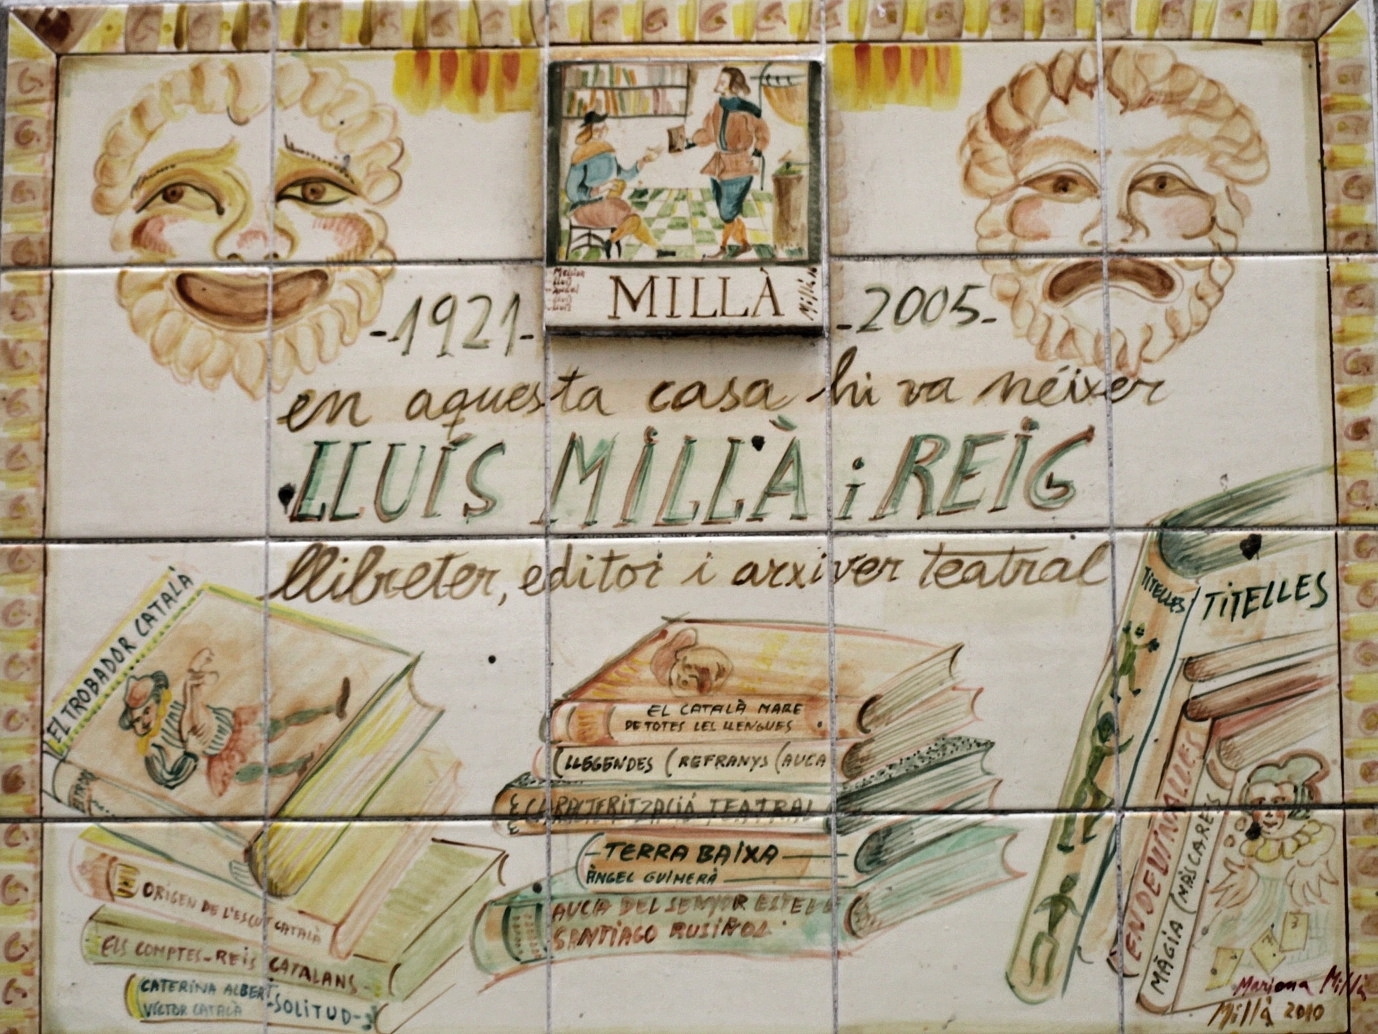 MILLÀ
-1921-
-2005-
en aquesta casa hi va néixer
LLUÍS MILLÀ i REIG
llibreter, editor i arxiver teatral
EL TROBADOR CATALÀ
EL CATALÀ MARE
DE TOTES LES LLENGUES
LLEGENDES (REFRANYS (AUCA
CARACTERITZACIÓ TEATRAL
TERRA BAIXA
ÀNGEL GUIMERÀ
AUCA DEL SENYOR ESTEVE
SANTIAGO RUSIÑOL
ORIGEN DE L'ESCUT CATALÀ
ELS COMPTES-REIS CATALANS
CATERINA ALBERT
VÍCTOR CATALÀ
-SOLITUD-
TITELLES
TITELLES
ENDEVINALLES
MÀGIA (MÀSCARES
Mariona Millà
Millà 2010